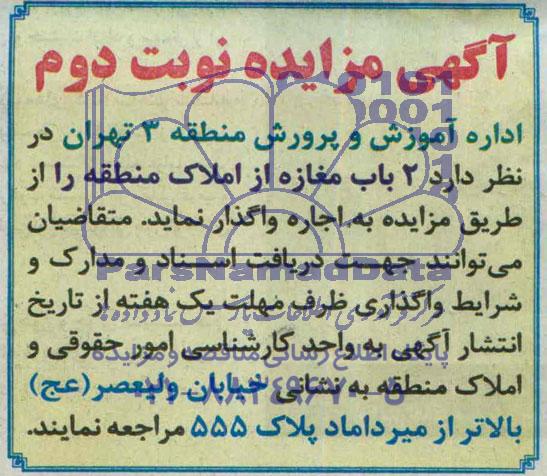 آگهی مزایده نوبت دوم
اداره آموزش و پرورش منطقه ۳ تهران در
نظر دارد ۲ باب مغازه از املاک منطقه را از
طریق مزایده به اجاره واگذار نماید. متقاضیان
می‌توانند جهت دریافت اسناد و مدارک و
شرایط واگذاری ظرف مهلت یک هفته از تاریخ
انتشار آگهی به واحد کارشناسی امور حقوقی و
املاک منطقه به نشانی خیابان ولیعصر(عج)
بالاتر از میرداماد پلاک ۵۵۵ مراجعه نمایند.
ParsNamadData
پایگاه اطلاع رسانی مناقصه و مزایده